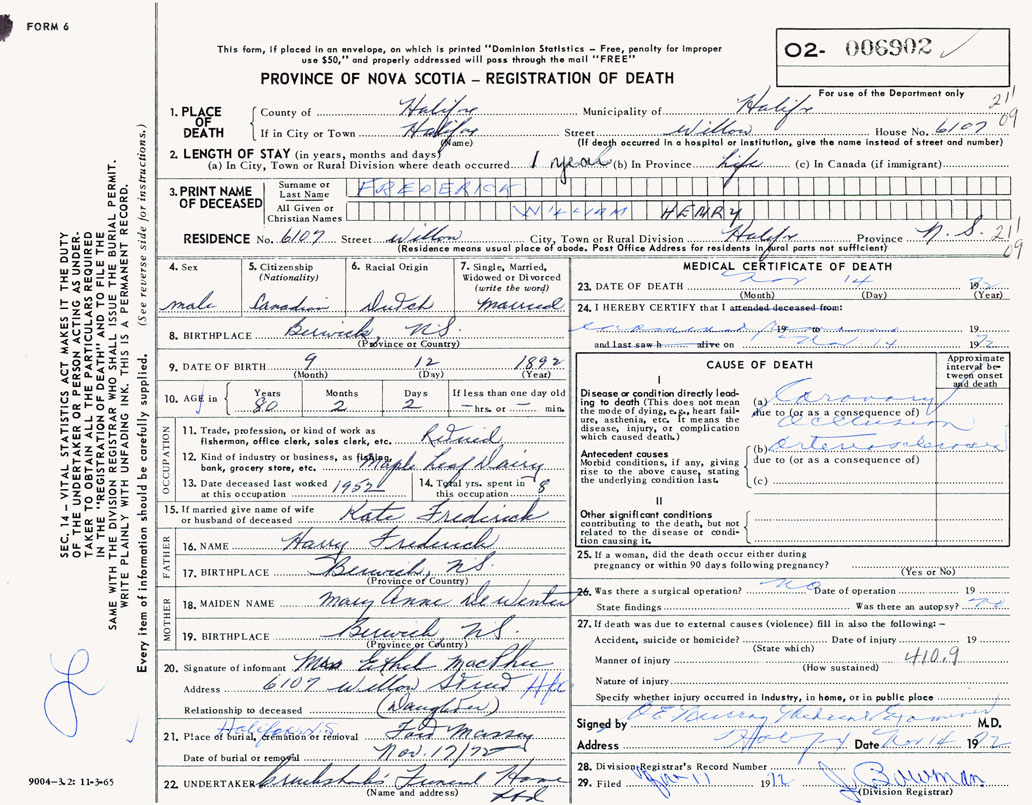 FORM 6
This form, if placed in an envelope, on which is printed "Dominion Statistics – Free, penalty for improper
use $50," and properly addressed will pass through the mail "FREE"
PROVINCE OF NOVA SCOTIA – REGISTRATION OF DEATH
O2- 006902
For use of the Department only
211
09
1. PLACE OF DEATH
County of Halifax Municipality of Halifax
If in City or Town Halifax Street Willow House No. 6107
(Name) (If death occurred in a hospital or institution, give the name instead of street and number)
2. LENGTH OF STAY (in years, months and days)
(a) In City, Town or Rural Division where death occurred 1 year (b) In Province life (c) In Canada (if immigrant)
3. PRINT NAME OF DECEASED
Surname or Last Name FREDERICK
All Given or Christian Names WILLIAM HENRY
RESIDENCE No. 6107 Street Willow City, Town or Rural Division Halifax Province N.S. 211
09
(Residence means usual place of abode. Post Office Address for residents in rural parts not sufficient)
4. Sex
male
5. Citizenship (Nationality)
Canadian
6. Racial Origin
Dutch
7. Single, Married, Widowed or Divorced (write the word)
Married
8. BIRTHPLACE Berwick, N.S.
(Province or Country)
9. DATE OF BIRTH 9 12 1892
(Month) (Day) (Year)
10. AGE in Years Months Days If less than one day old
80 2 2 – hrs. or – min.
OCCUPATION
11. Trade, profession, or kind of work as fisherman, office clerk, sales clerk, etc. Retired
12. Kind of industry or business, as fishing, bank, grocery store, etc. Maple Leaf Dairy
13. Date deceased last worked at this occupation 1952
14. Total yrs. spent in this occupation 8
15. If married give name of wife or husband of deceased Kate Frederick
FATHER
16. NAME Harry Frederick
17. BIRTHPLACE Berwick, N.S.
(Province or Country)
MOTHER
18. MAIDEN NAME Mary Anne DeWinter
19. BIRTHPLACE Berwick N.S.
(Province or Country)
20. Signature of informant Mrs Ethel MacPhee
Address 6107 Willow Street Hfx
Relationship to deceased (Daughter)
21. Place of burial, cremation or removal Halifax, N.S. Fort Massey
Date of burial or removal Nov. 17/72
22. UNDERTAKER Cruikshank's Funeral Home
(Name and address)
MEDICAL CERTIFICATE OF DEATH
23. DATE OF DEATH Nov 14 1972
(Month) (Day) (Year)
24. I HEREBY CERTIFY that I attended deceased from:
19 to 19
and last saw h alive on Nov 14 1972
CAUSE OF DEATH
Approximate interval between onset and death
I
Disease or condition directly leading to death (This does not mean the mode of dying, e.g., heart failure, asthenia, etc. it means the disease, injury, or complication which caused death.)
(a) Coronary
due to (or as a consequence of)
occlusion
Antecedent causes
Morbid conditions, if any, giving rise to the above cause, stating the underlying condition last.
(b) Arteriosclerosis
due to (or as a consequence of)
(c)
II
Other significant conditions
contributing to the death, but not related to the disease or condition causing it.
25. If a woman, did the death occur either during pregnancy or within 90 days following pregnancy?
(Yes or No)
26. Was there a surgical operation? no Date of operation 19
State findings Was there an autopsy? no
27. If death was due to external causes (violence) fill in also the following: –
Accident, suicide or homicide? Date of injury 19
(State which)
Manner of injury 410.9
(How sustained)
Nature of injury
Specify whether injury occurred in industry, in home, or in public place
Signed by Murray Medical Examiner M.D.
Address Halifax Date Nov 14 1972
28. Division Registrar's Record Number
29. Filed 1972 J. Bowman
(Division Registrar)
SEC. 14 – VITAL STATISTICS ACT MAKES IT THE DUTY
OF THE UNDERTAKER OR PERSON ACTING AS UNDER-
TAKER TO OBTAIN ALL THE PARTICULARS REQUIRED
IN THE "REGISTRATION OF DEATH" AND TO FILE THE
SAME WITH THE DIVISION REGISTRAR WHO SHALL ISSUE THE BURIAL PERMIT.
WRITE PLAINLY WITH UNFADING INK. THIS IS A PERMANENT RECORD.
Every item of information should be carefully supplied. (See reverse side for instructions.)
9004-3.2: 11-3-65